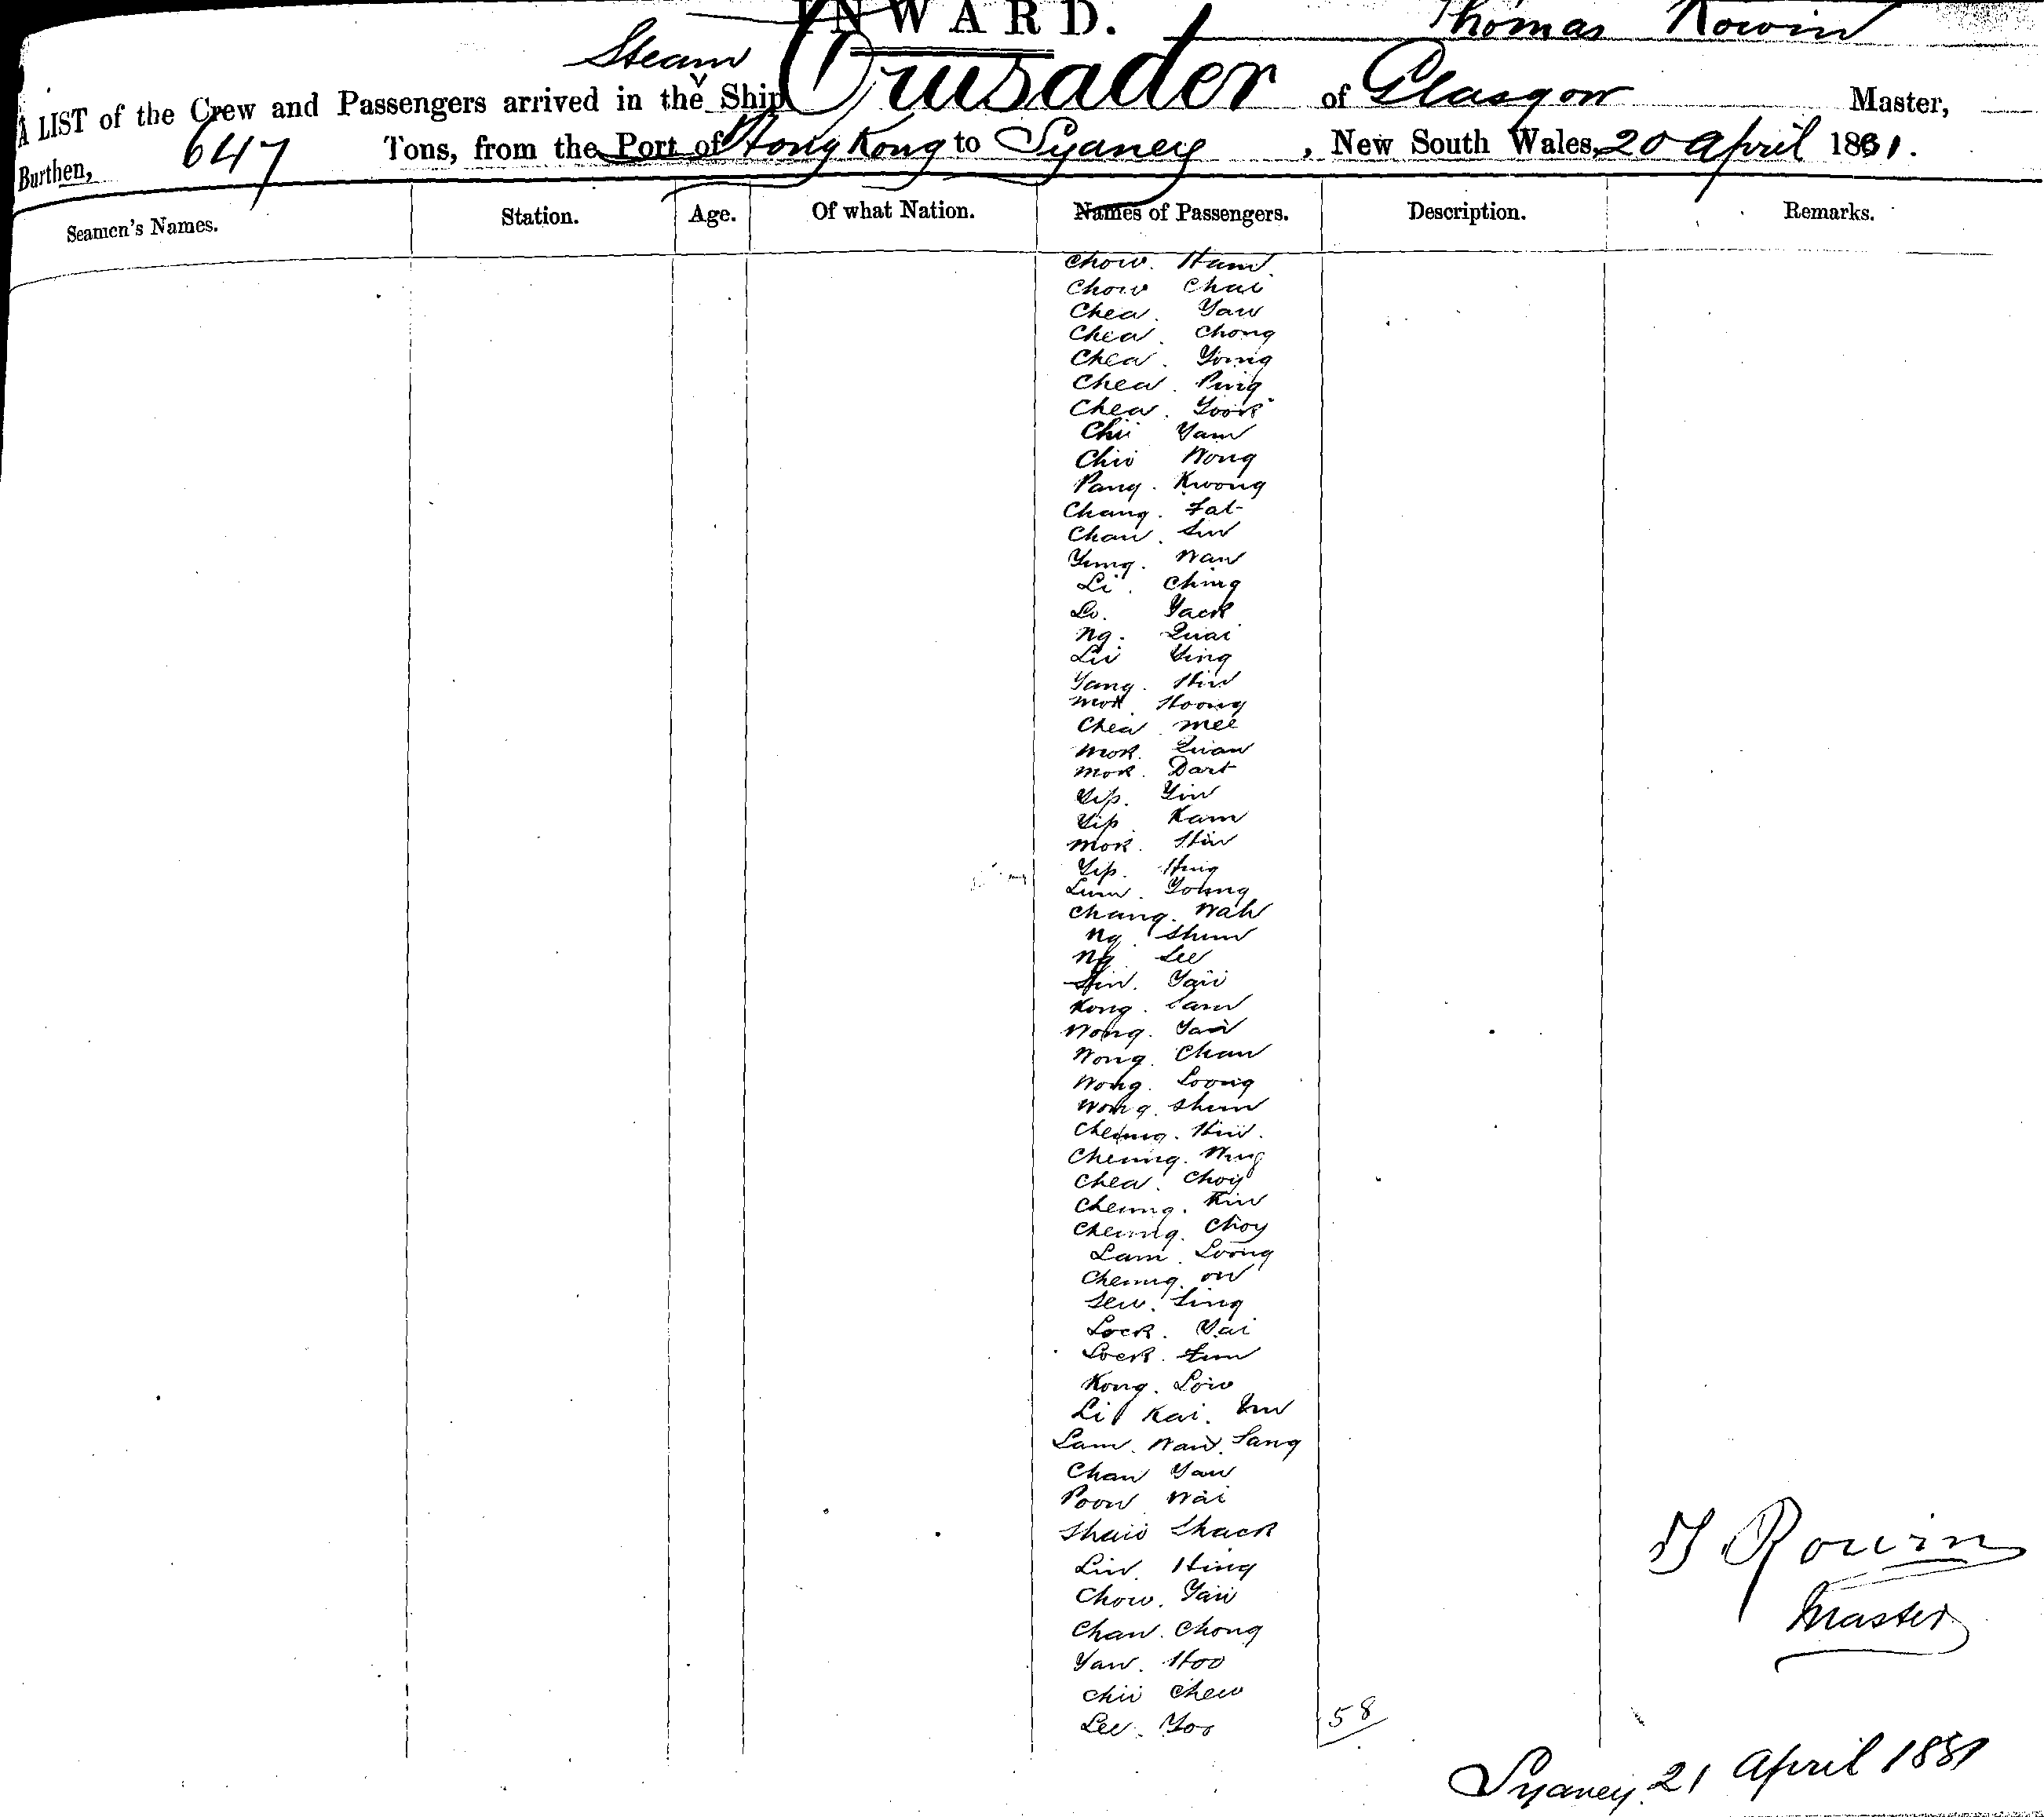 INWARD.
Thomas Rowin
Steam
A LIST of the Crew and Passengers arrived in the Ship Crusader of Glasgow Master,
Burthen, 647 Tons, from the Port of Hong Kong to Sydney, New South Wales, 20 April 1881.
Seamen's Names. Station. Age. Of what Nation. Names of Passengers. Description. Remarks.
Chow. Ham
Chow Chai
Chea. Yaw
Chea. Chong
Chea. Young
Chea. Ping
Chea. Yook
Chii Yam
Chii Wong
Pang. Kwong
Chang. Fat
Chan. Sin
Yung. Wan
Li. Ching
Lo. Yack
Ng. Quai
Lii Ying
Yang. Hin
Mok Hoong
Chea Mee
Mok. Quan
Mok. Dart
Yip. Yin
Yip Kam
Mok. Hin
Yip. Hing
Lum. Young
Chang. Wah
Ng Shun
Ng Lee
Hin. Yaii
Kong. Sam
Wong. Yan
Wong. Chan
Wong. Loong
Wong. Shun
Cheung. Hin.
Cheung. Wing
Chea. Choy
Cheung. Kin
Cheung. Choy
Lam. Loong
Cheung. On
Sew. Sing
Lock. Yai
Lock. Fun
Kong. Low
Li Kai.
Lam. Wan. Sang
Chan Yaw
Poon Wai
Shaw Shack
Lin. Hing
Chow. Yaii
Chan. Chong
Yaw. Hoo
Chii Chew
Lee. Yoo 58
T Rowin
Master
Sydney. 21 April 1881